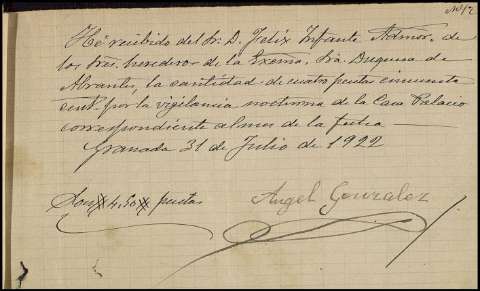 Nº 12
He recibido del Sr. D. Felix Infante Admor. de
los Sres. herederos de la Exema. Sra. Duquesa de
Abrantes, la cantidad de cuatro pesetas cincuenta
cent. por la vigilancia nocturna de la Casa Palacio
correspondiente al mes de la fecha
Granada 31 de Julio de 1922
Son 4,50 pesetas
Angel Gonzalez